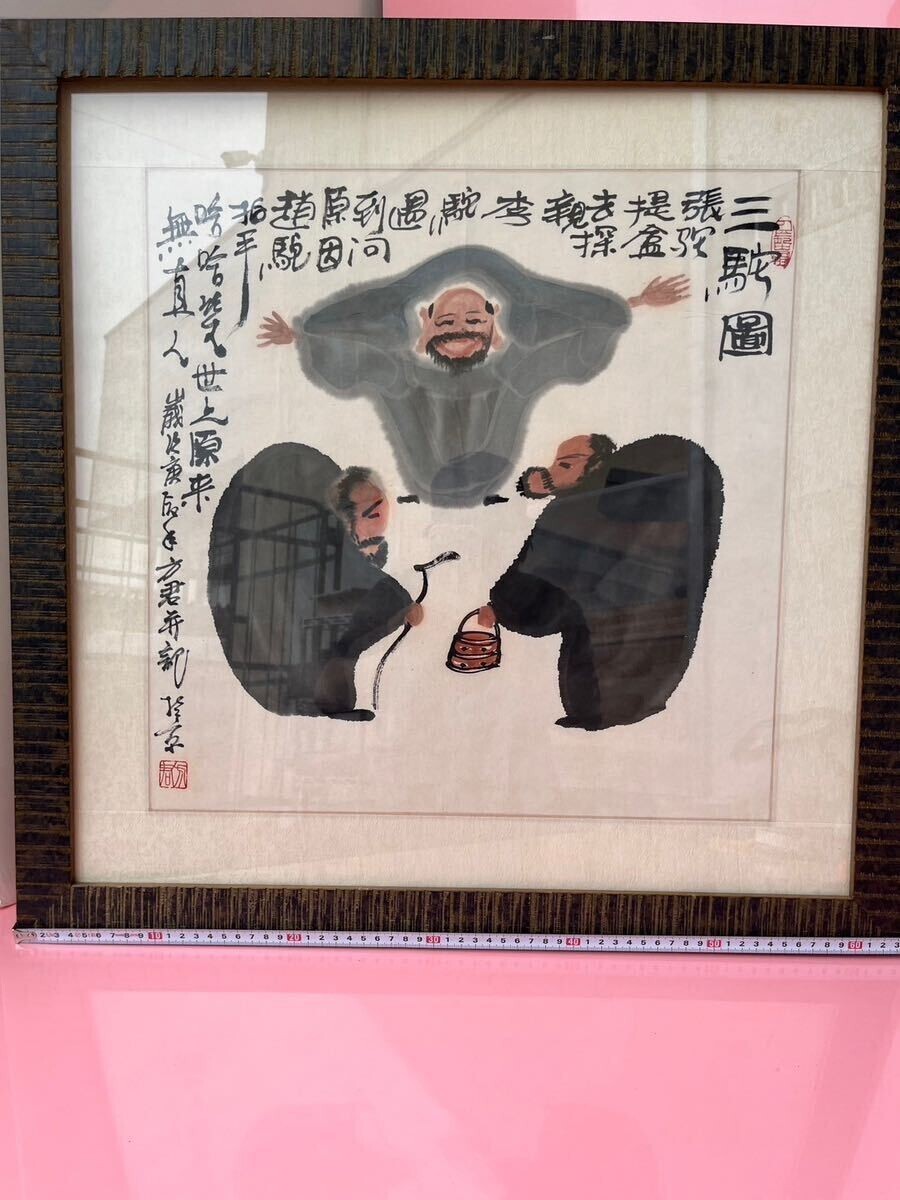 三駝圖
張驼
提盒
去探
親
李
駝
遇
到问
原因
趙駝
拍手
哈哈笑世上原来
無直人 歲次庚辰年方君并記於京
2 3 4 5 6 7 8 9 10 1 2 3 4 5 6 7 8 9 20 1 2 3 4 5 6 7 8 9 30 1 2 3 4 5 6 7 8 9 40 1 2 3 4 5 6 7 8 9 50 1 2 3 4 5 6 7 8 9 60 1 2 3